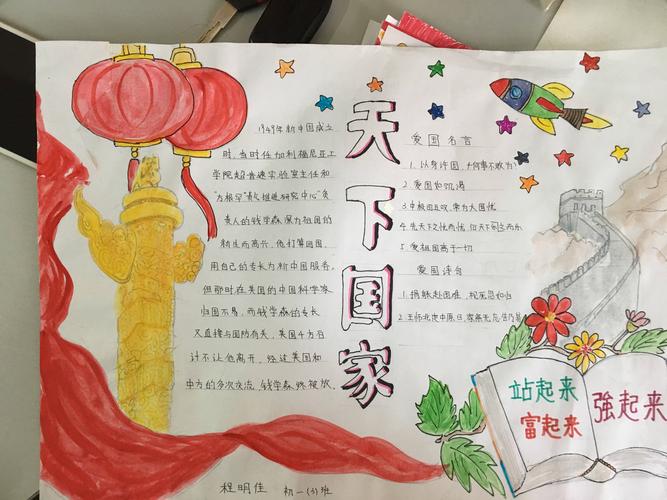 天下国家
1949年新中国成立
时，当时任加利福尼亚工
学院超音速实验室主任和
"古根罕"喷气推进研究中心"负
责人的钱学森深为祖国的
新生而高兴。他打算回国，
用自己的专长为新中国服务。
但那时在美国的中国科学家
归国不易，而钱学森的专长
又直接与国防有关，美国千方百
计不让他离开，经过美国和
中方的多次交流，钱学森终被放。
爱国名言
1. 以身许国，何事不敢为？
2. 爱国如饥渴
3. 中极田五収，常为大国忧
4. 先天下之忧而忧，后天下之乐而乐
5. 爱祖国高于一切
爱国诗句
1. 捐躯赴国难，视死忽如归
2. 王师北定中原日，家祭无忘告乃翁
站起来
富起来
強起来
程明佳 初一(3)班